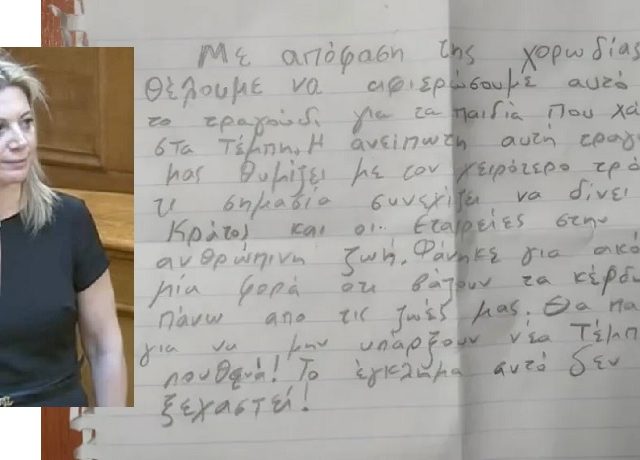 Με απόφαση της χορωδίας
θέλουμε να αφιερώσουμε αυτό
το τραγούδι για τα παιδιά που χά
στα Τέμπη. Η ανείπωτη αυτή τραγω
μας θυμίζει με τον χειρότερο τρό
τι σημασία συνεχίζει να δίνει
Κράτος και οι εταιρείες στην
ανθρώπινη ζωή. Φάνηκε για ακό
μία φορά ότι βάζουν τα κέρδη
πάνω απο τις ζωές μας. Θα πα
για να μην υπάρξουν νέα Τέμπ
πουθενά! Το έγκλημα αυτό δεν
ξεχαστεί!